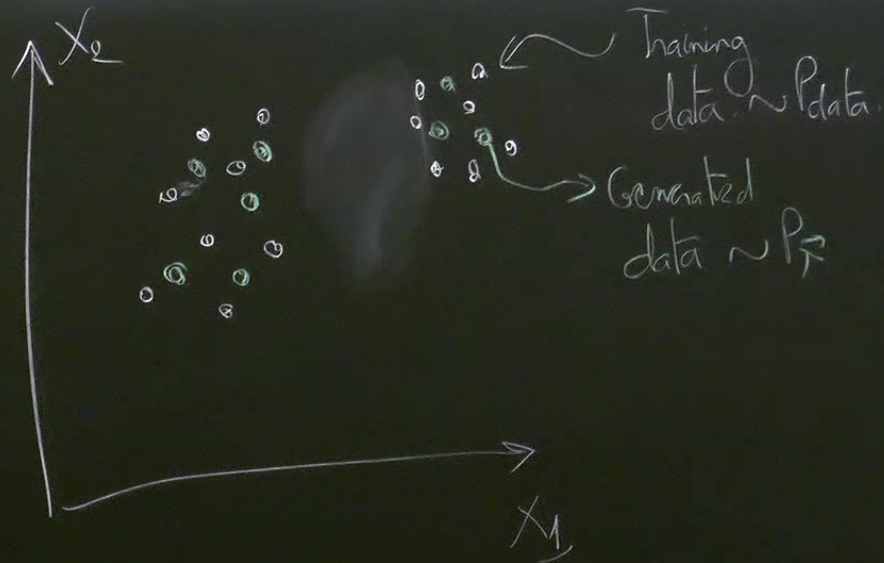 X2
Training
data ~ Pdata.
Generated
data ~ P
X1